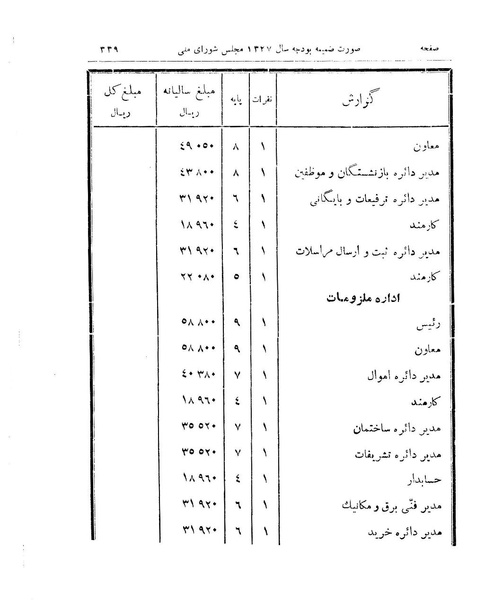 صفحه صورت ضمیمه بودجه سال ۱۳۲۷ مجلس شورای ملی ۳۳۹
گزارش نفرات پایه مبلغ سالیانه ریال مبلغ کل ریال
معاون ۱ ۸ ۴۹۰۵۰
مدیر دائره بازنشستگان و موظفین ۱ ۸ ۴۳۸۰۰
مدیر دائره ترفیعات و بایگانی ۱ ۶ ۳۱۹۲۰
کارمند ۱ ۴ ۱۸۹۶۰
مدیر دائره ثبت و ارسال مراسلات ۱ ۶ ۳۱۹۲۰
کارمند ۱ ۵ ۲۲۰۸۰
اداره ملزومات
رئیس ۱ ۹ ۵۸۸۰۰
معاون ۱ ۹ ۵۸۸۰۰
مدیر دائره اموال ۱ ۷ ۴۰۳۸۰
کارمند ۱ ۴ ۱۸۹۶۰
مدیر دائره ساختمان ۱ ۷ ۳۵۵۲۰
مدیر دائره تشریفات ۱ ۷ ۳۵۵۲۰
حسابدار ۱ ۴ ۱۸۹۶۰
مدیر فنّی برق و مکانیك ۱ ۶ ۳۱۹۲۰
مدیر دائره خرید ۱ ۶ ۳۱۹۲۰